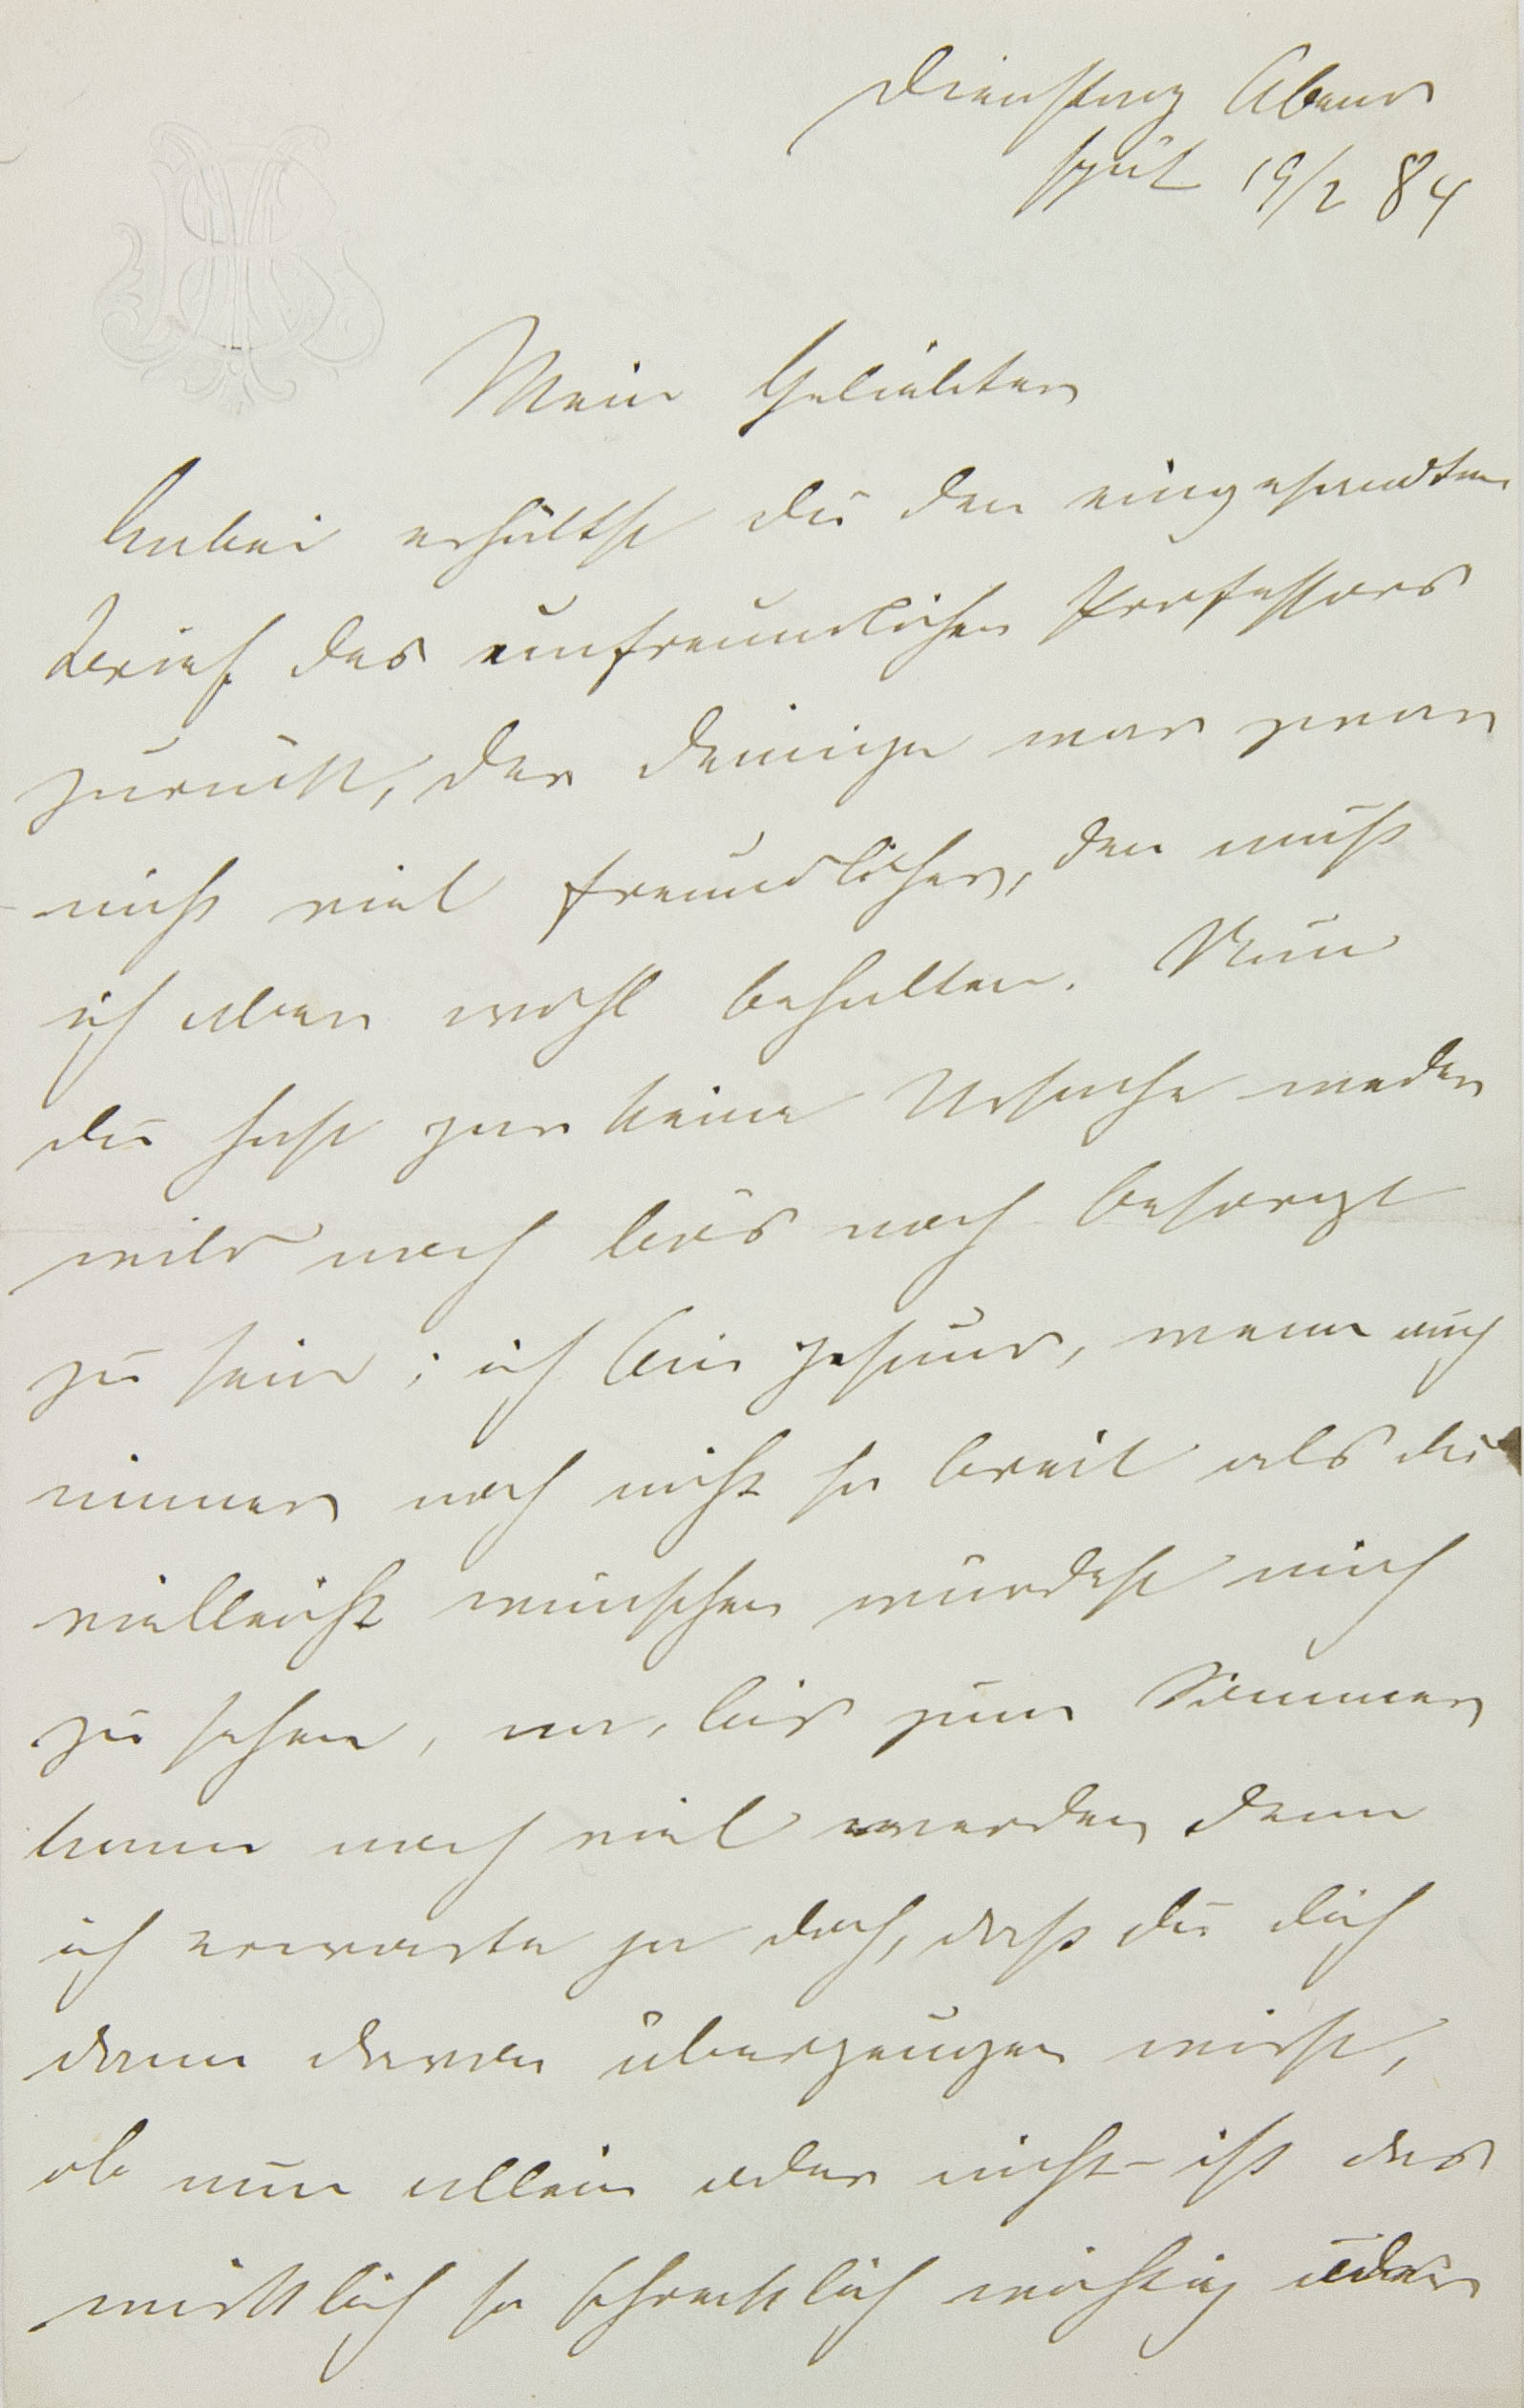 Dienstag Abend
spät 19/2 84
Mein Geliebter
Anbei erhältst Du den eingesandten
Brief des unfreundlichen Professors
zurück, der Deinige war zwar
nicht viel freundlicher, den muß
ich aber wohl behalten. Nun
Du hast gar keine Ursache weder
wild noch bös noch besorgt
zu sein; ich bin gesund, wenn auch
immer noch nicht so breit als Du
vielleicht wünschen würdest mich
zu sehen, na, bis zum Sommer
kann noch viel werden denn
ich erwarte ja doch, daß Du Dich
dann davon überzeugen wirst,
ob nun allein oder nicht - ist das
wirklich so schrecklich wichtig oder